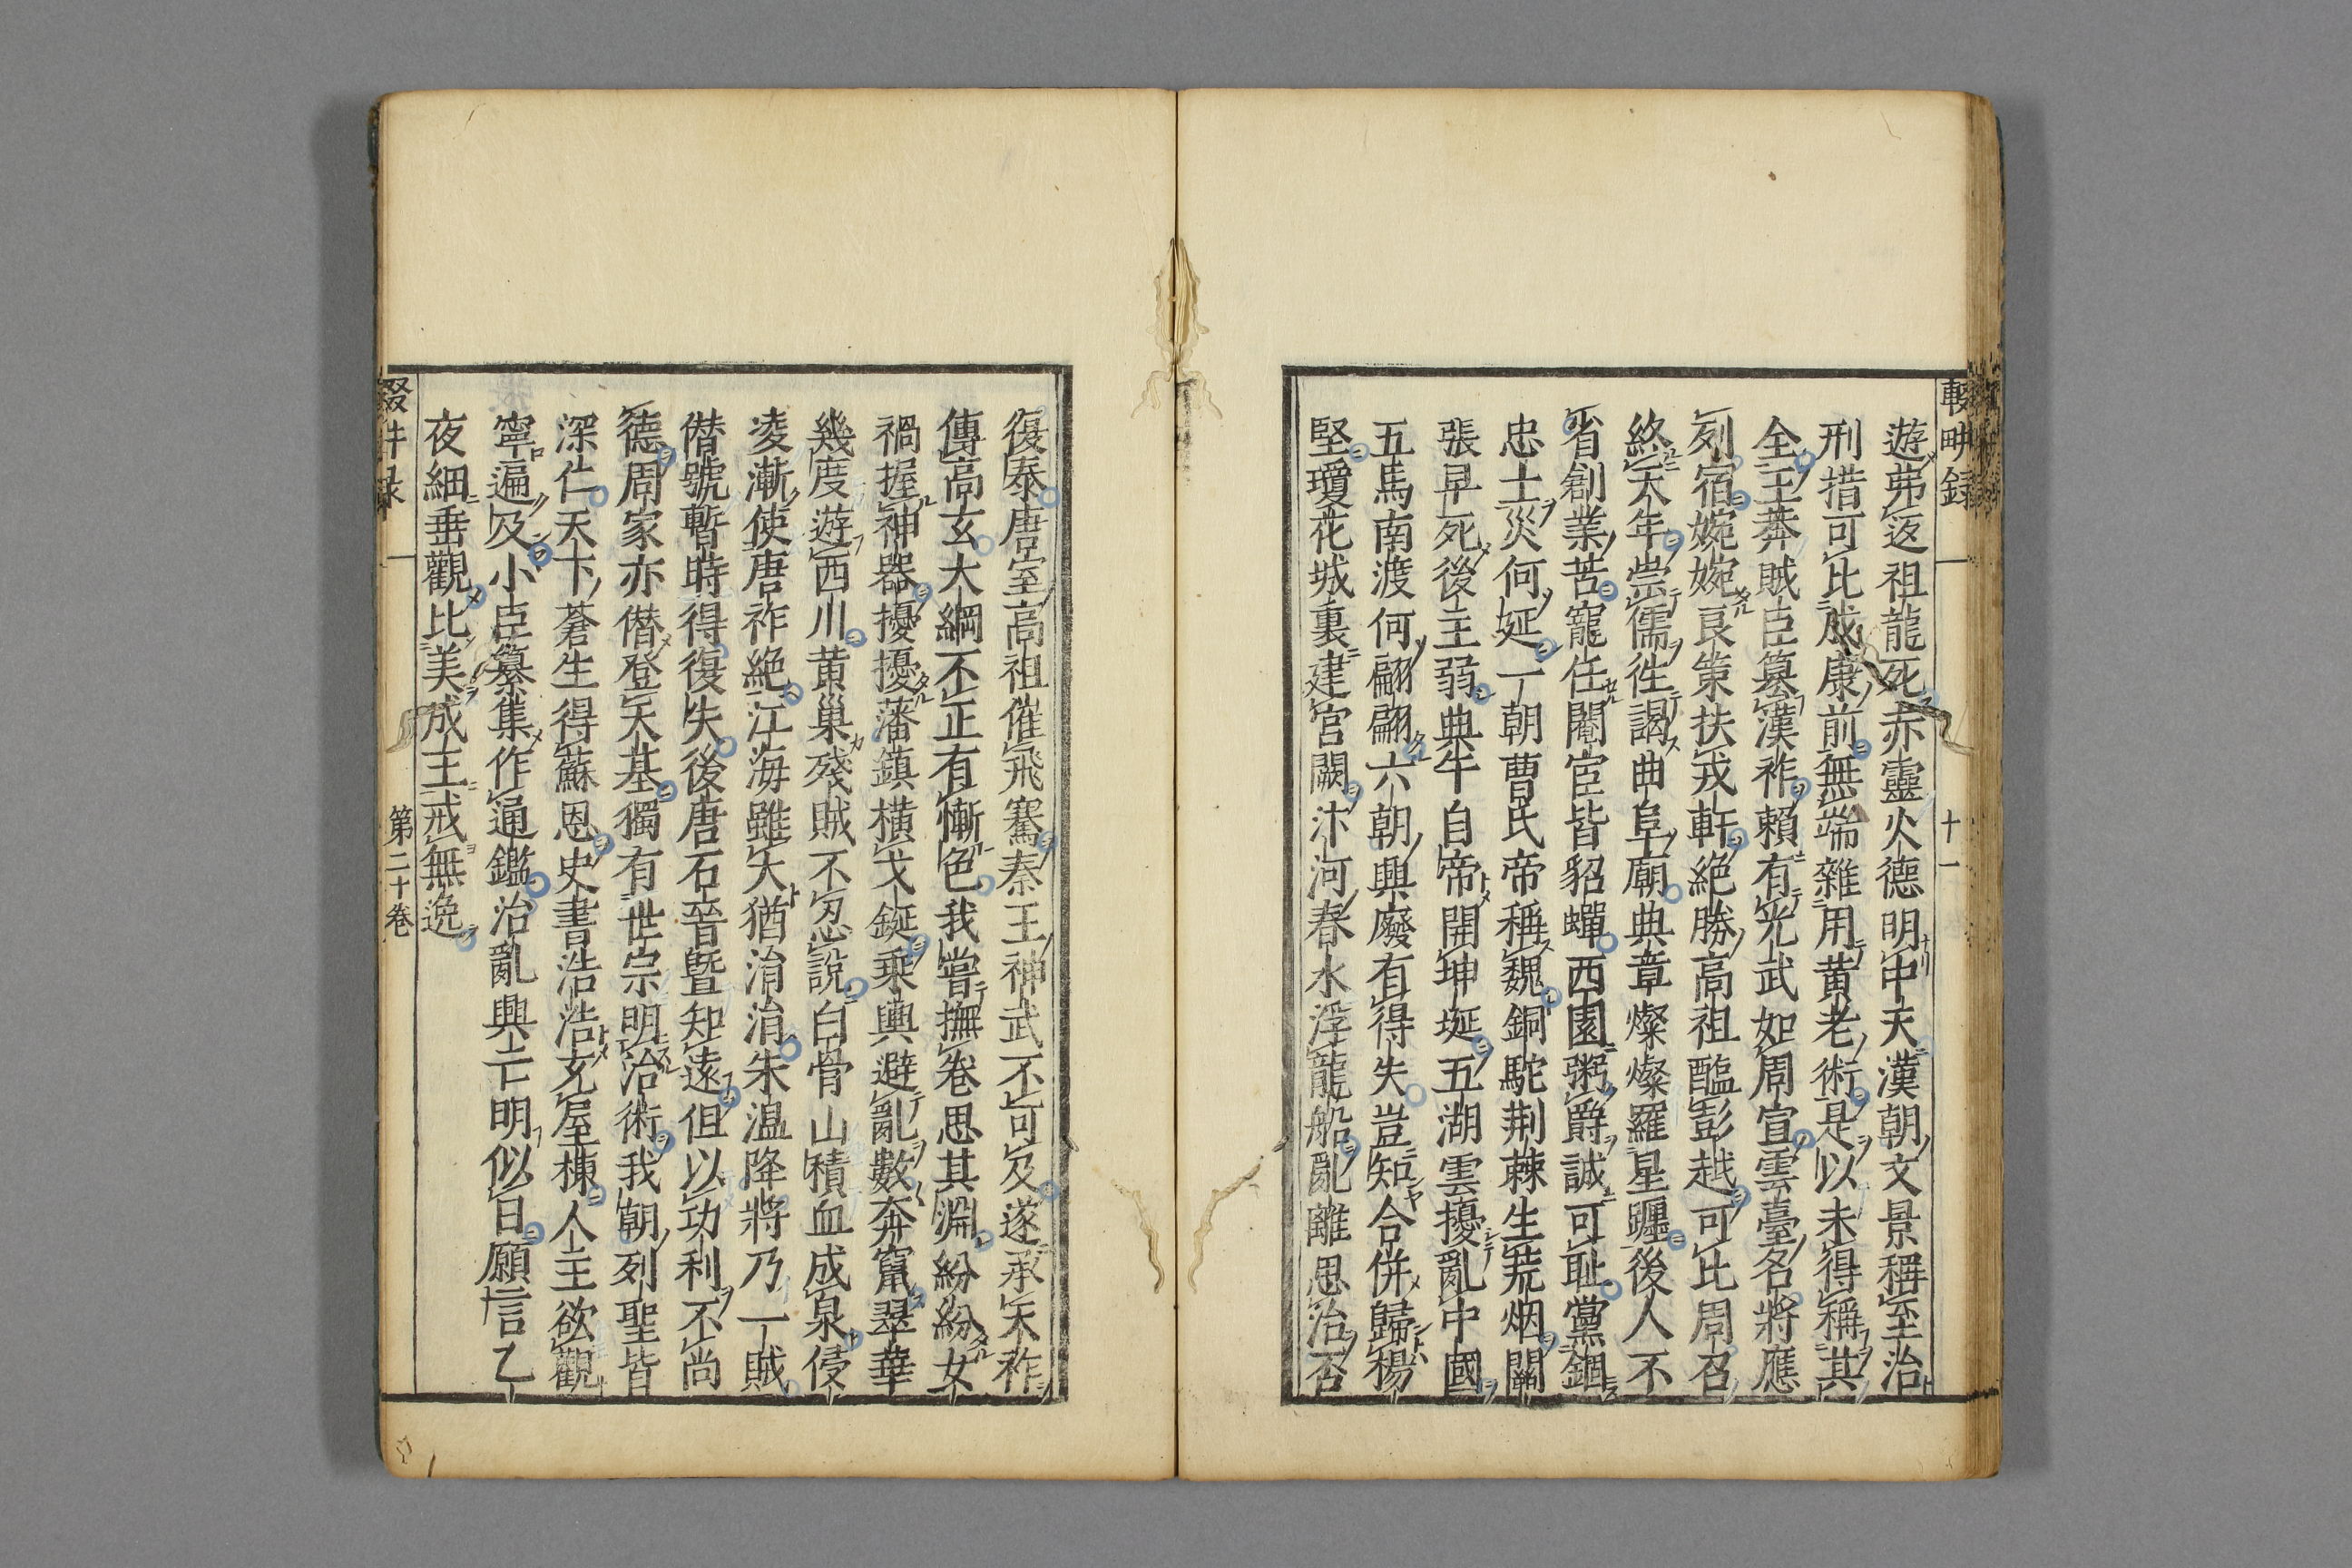 輟畊録
十一
遊弗返祖龍死亦靈火德明中天漢朝文景稱至治
刑措可比成康前無端雜用黄老術是以未得稱其
全王莽賊臣簒漢祚賴有光武如周宣雲臺名將應
列宿婉婉良策扶戎軒絶勝高祖醢彭越可比周召
終天年崇儒徃謁曲阜廟典章燦燦羅星躔後人不
省創業苦寵任閹宦皆貂蟬西園粥爵誠可耻黨錮
忠士災何延一朝曹氏帝稱魏銅駝荆棘生荒烟關
張早死後主弱典午自帝開坤埏五湖雲擾亂中國
五馬南渡何翩翩六朝興廢有得失豈知合併歸楊
堅瓊花城裏建宫闕汴河春水浮龍船亂離思治否
復泰唐室高祖催飛騫秦王神武不可及遂承天祚
傳高玄大綱不正有慚色我嘗撫卷思其淵紛紛女
禍握神器擾擾藩鎮横戈鋋乗輿避亂數奔竄翠華
幾度遊西川黄巢殘賊不忍說白骨山積血成泉侵
凌漸使唐祚絶江海雖大猶涓涓朱温降將乃一賊
僭號暫時得復失後唐石晉曁知遠但以功利不尚
德周家亦僭登天基獨有世宗明治術我朝列聖皆
深仁天下蒼生得蘇恩史書浩浩充屋棟人主欲觀
寧遍及小臣纂集作通鑑治亂興亡明似日願言乙
夜細垂觀比美成王戒無逸
輟畊録
第二十卷